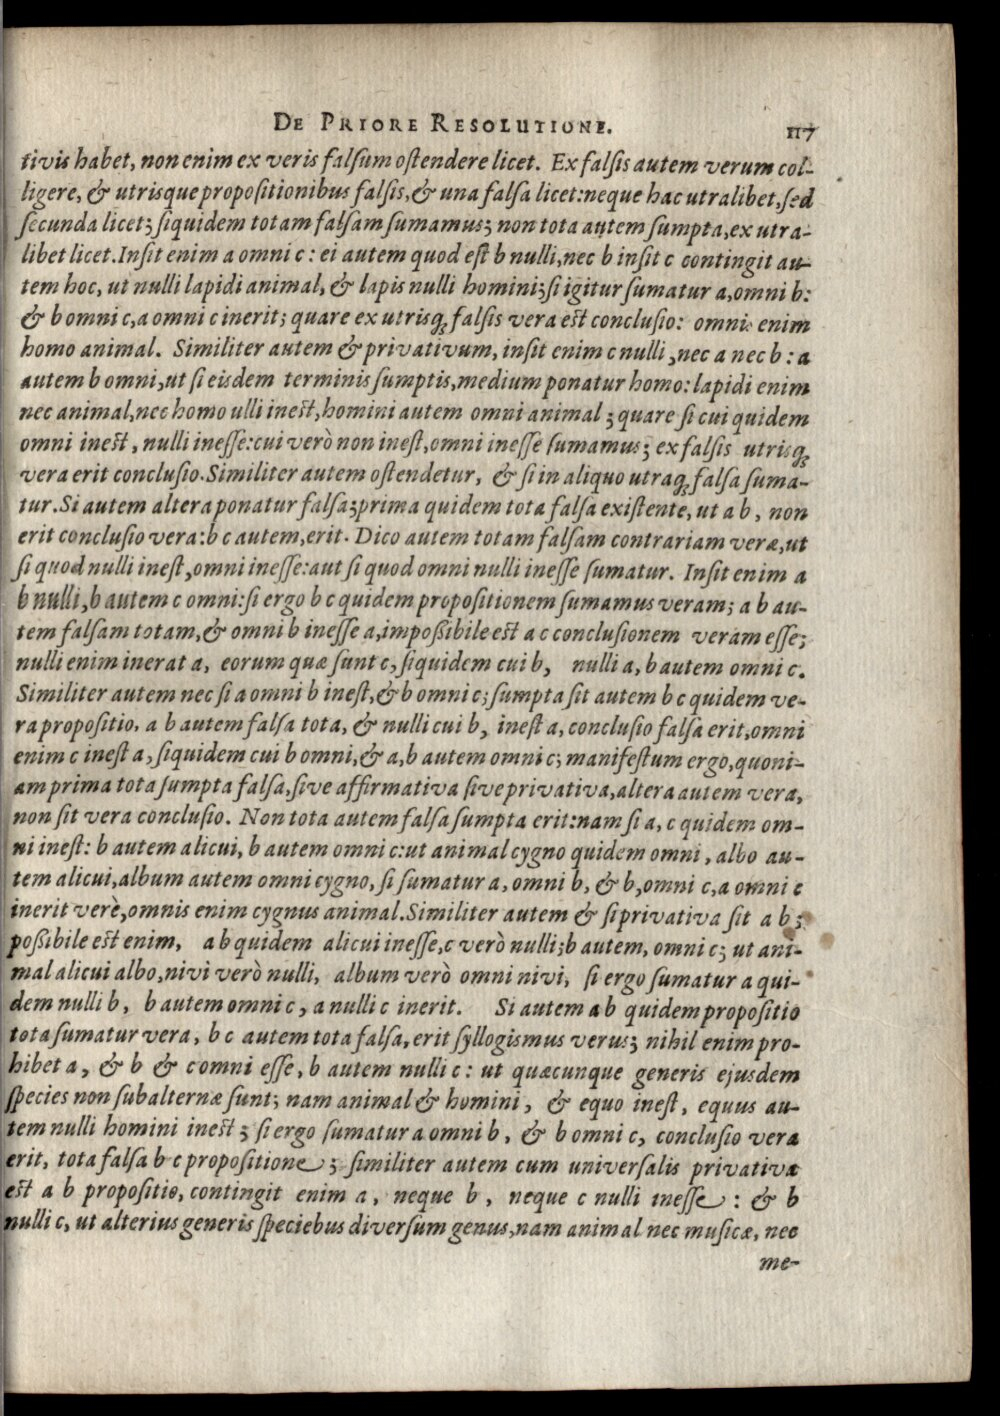 DE PRIORE RESOLUTIONE. 117
tivis habet, non enim ex veris falsum ostendere licet. Ex falsis autem verum col-
ligere, & utrisque propositionibus falsis, & una falsa licet: neque hac utralibet, sed
secunda licet; siquidem totam falsam sumamus; non tota autem sumpta, ex utra-
libet licet. Insit enim a omni c: ei autem quod est b nulli, nec b insit c contingit au-
tem hoc, ut nulli lapidi animal, & lapis nulli homini; si igitur sumatur a, omni b:
& b omni c, a omni c inerit; quare ex utrisq; falsis vera est conclusio: omnis enim
homo animal. Similiter autem & privativum, insit enim c nulli, nec a nec b: a
autem b omni, ut si eisdem terminis sumptis, medium ponatur homo: lapidi enim
nec animal, nec homo ulli inest, homini autem omni animal; quare si cui quidem
omni inest, nulli inesse: cui verò non inest, omni inesse sumamus; ex falsis utrisq;
vera erit conclusio. Similiter autem ostendetur, & si in aliquo utraq; falsa suma-
tur. Si autem altera ponatur falsa; prima quidem tota falsa existente, ut a b, non
erit conclusio vera: b c autem, erit. Dico autem totam falsam contrariam veræ, ut
si quod nulli inest, omni inesse: aut si quod omni nulli inesse sumatur. Insit enim a
b nulli, b autem c omni: si ergo b c quidem propositionem sumamus veram; a b au-
tem falsam totam, & omni b inesse a, impossibile est a c conclusionem veram esse;
nulli enim inerat a, eorum quæ sunt c, siquidem cui b, nulli a, b autem omni c.
Similiter autem nec si a omni b inest, & b omni c; sumpta sit autem b c quidem ve-
ra propositio, a b autem falsa tota, & nulli cui b, inest a, conclusio falsa erit, omni
enim c inest a, siquidem cui b omni, & a, b autem omni c; manifestum ergo, quoni-
am prima tota sumpta falsa, sive affirmativa sive privativa, altera autem vera,
non sit vera conclusio. Non tota autem falsa sumpta erit: nam si a, c quidem om-
ni inest: b autem alicui, b autem omni c: ut animal cygno quidem omni, albo au-
tem alicui, album autem omni cygno, si sumatur a, omni b, & b, omni c, a omni c
inerit verè, omnis enim cygnus animal. Similiter autem & si privativa sit a b;
possibile est enim, a b quidem alicui inesse, c verò nulli; b autem, omni c; ut ani-
mal alicui albo, nivi verò nulli, album verò omni nivi, si ergo sumatur a qui-
dem nulli b, b autem omni c, a nulli c inerit. Si autem a b quidem propositio
tota sumatur vera, b c autem tota falsa, erit syllogismus verus; nihil enim pro-
hibet a, & b & c omni esse, b autem nulli c: ut quæcunque generis ejusdem
species non subalternæ sunt; nam animal & homini, & equo inest, equus au-
tem nulli homini inest; si ergo sumatur a omni b, & b omni c, conclusio vera
erit, tota falsa b c propositione; similiter autem cum universalis privativa
est a b propositio, contingit enim a, neque b, neque c nulli inesse: & b
nulli c, ut alterius generis speciebus diversum genus, nam animal nec musicæ, nec
me-